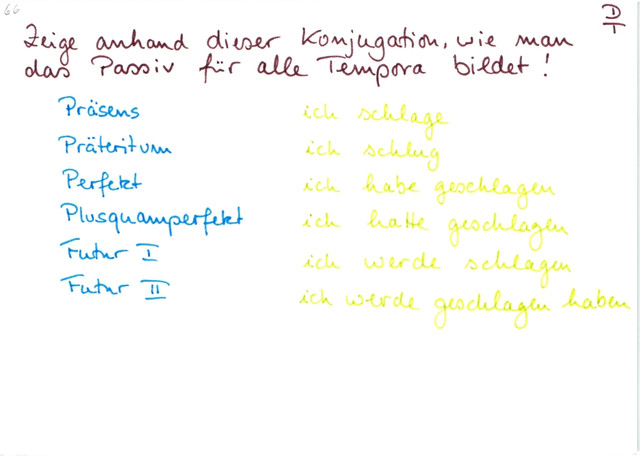 66
D
T
Zeige anhand dieser Konjugation, wie man
das Passiv für alle Tempora bildet!
Präsens ich schlage
Präteritum ich schlug
Perfekt ich habe geschlagen
Plusquamperfekt ich hatte geschlagen
Futur I ich werde schlagen
Futur II ich werde geschlagen haben